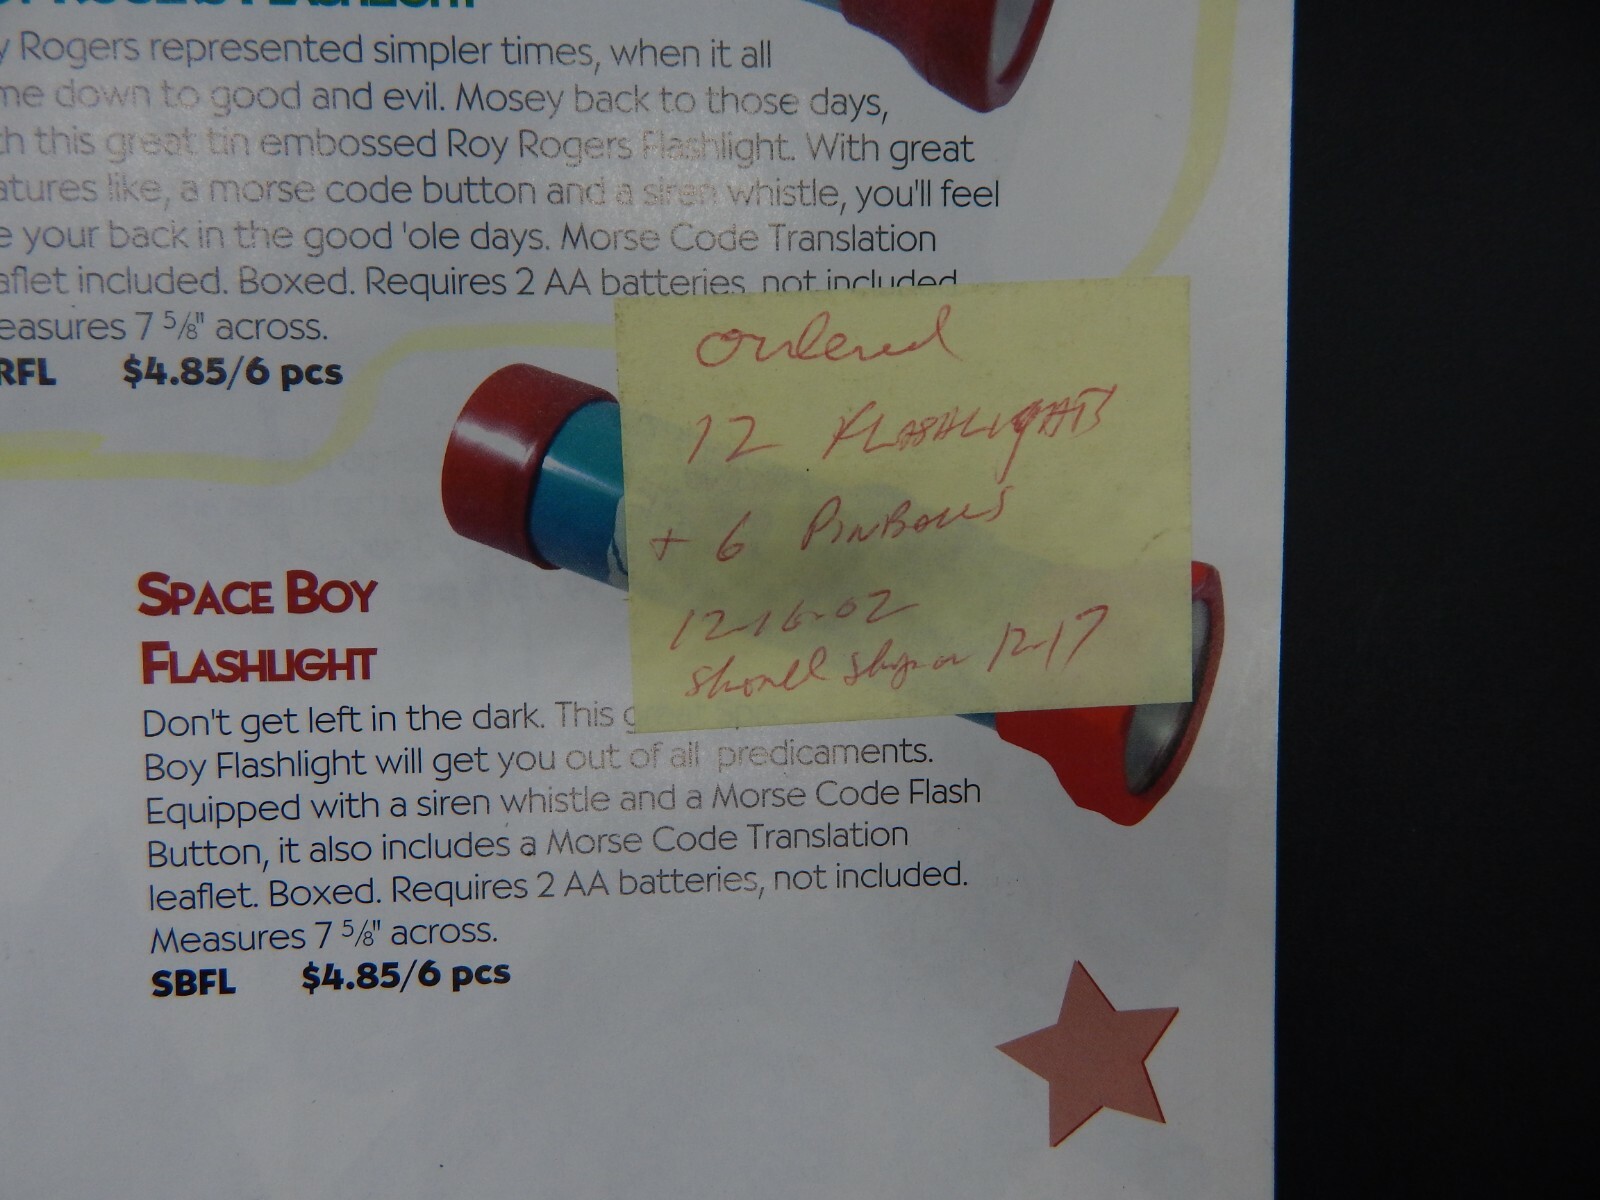 y Rogers represented simpler times, when it all
me down to good and evil. Mosey back to those days,
th this great tin embossed Roy Rogers Flashlight. With great
atures like, a morse code button and a siren whistle, you'll feel
e your back in the good 'ole days. Morse Code Translation
aflet included. Boxed. Requires 2 AA batteries, not included
easures 7 5/8" across.
RFL $4.85/6 pcs
ordered
12 FLASHLIGHTS
+ 6 PINBALLS
12-16-02
should ship on 12-17
SPACE BOY
FLASHLIGHT
Don't get left in the dark. This g
Boy Flashlight will get you out of all predicaments.
Equipped with a siren whistle and a Morse Code Flash
Button, it also includes a Morse Code Translation
leaflet. Boxed. Requires 2 AA batteries, not included.
Measures 7 5/8" across.
SBFL $4.85/6 pcs